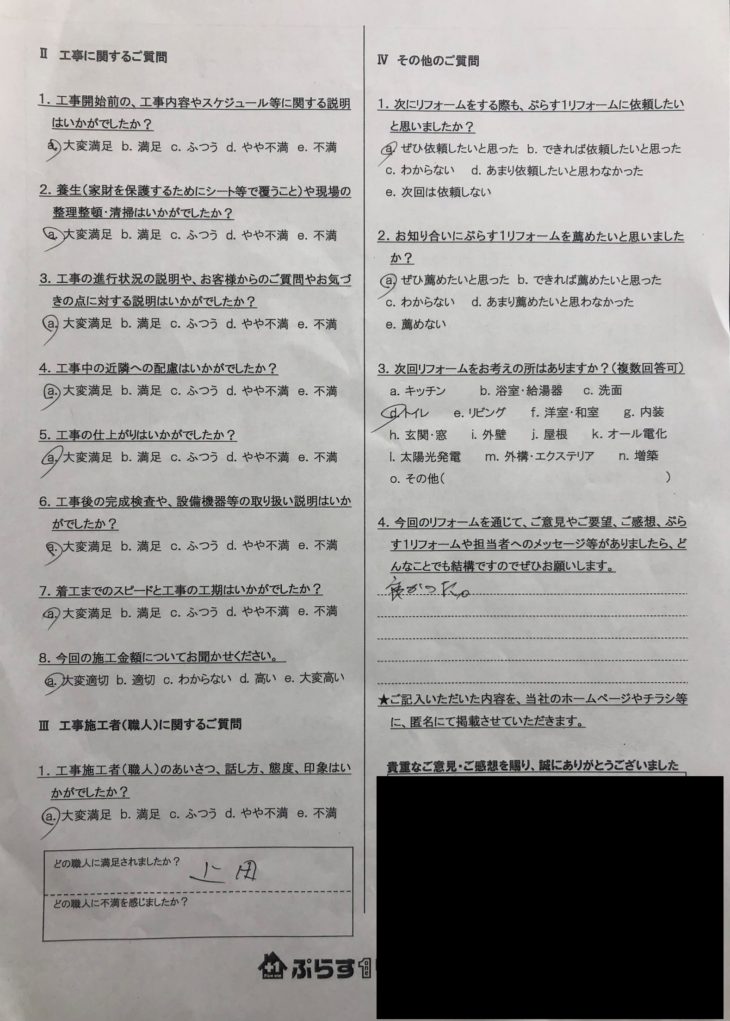 Ⅱ 工事に関するご質問
1. 工事開始前の、工事内容やスケジュール等に関する説明
はいかがでしたか?
a. 大変満足 b. 満足 c. ふつう d. やや不満 e. 不満
2. 養生(家財を保護するためにシート等で覆うこと)や現場の
整理整頓・清掃はいかがでしたか?
a. 大変満足 b. 満足 c. ふつう d. やや不満 e. 不満
3. 工事の進行状況の説明や、お客様からのご質問やお気づ
きの点に対する説明はいかがでしたか?
a. 大変満足 b. 満足 c. ふつう d. やや不満 e. 不満
4. 工事中の近隣への配慮はいかがでしたか?
a. 大変満足 b. 満足 c. ふつう d. やや不満 e. 不満
5. 工事の仕上がりはいかがでしたか?
a. 大変満足 b. 満足 c. ふつう d. やや不満 e. 不満
6. 工事後の完成検査や、設備機器等の取り扱い説明はいか
がでしたか?
a. 大変満足 b. 満足 c. ふつう d. やや不満 e. 不満
7. 着工までのスピードと工事の工期はいかがでしたか?
a. 大変満足 b. 満足 c. ふつう d. やや不満 e. 不満
8. 今回の施工金額についてお聞かせください。
a. 大変適切 b. 適切 c. わからない d. 高い e. 大変高い
Ⅲ 工事施工者(職人)に関するご質問
1. 工事施工者(職人)のあいさつ、話し方、態度、印象はい
かがでしたか?
a. 大変満足 b. 満足 c. ふつう d. やや不満 e. 不満
どの職人に満足されましたか?
上田
どの職人に不満を感じましたか?
ぷらす1
Ⅳ その他のご質問
1. 次にリフォームをする際も、ぷらす1リフォームに依頼したい
と思いましたか?
a. ぜひ依頼したいと思った b. できれば依頼したいと思った
c. わからない d. あまり依頼したいと思わなかった
e. 次回は依頼しない
2. お知り合いにぷらす1リフォームを薦めたいと思いました
か?
a. ぜひ薦めたいと思った b. できれば薦めたいと思った
c. わからない d. あまり薦めたいと思わなかった
e. 薦めない
3. 次回リフォームをお考えの所はありますか?(複数回答可)
a. キッチン b. 浴室・給湯器 c. 洗面
d. トイレ e. リビング f. 洋室・和室 g. 内装
h. 玄関・窓 i. 外壁 j. 屋根 k. オール電化
l. 太陽光発電 m. 外構・エクステリア n. 増築
o. その他( )
4. 今回のリフォームを通じて、ご意見やご要望、ご感想、ぷら
す1リフォームや担当者へのメッセージ等がありましたら、ど
んなことでも結構ですのでぜひお願いします。
良かった。
★ご記入いただいた内容を、当社のホームページやチラシ等
に、匿名にて掲載させていただきます。
貴重なご意見・ご感想を賜り、誠にありがとうございました